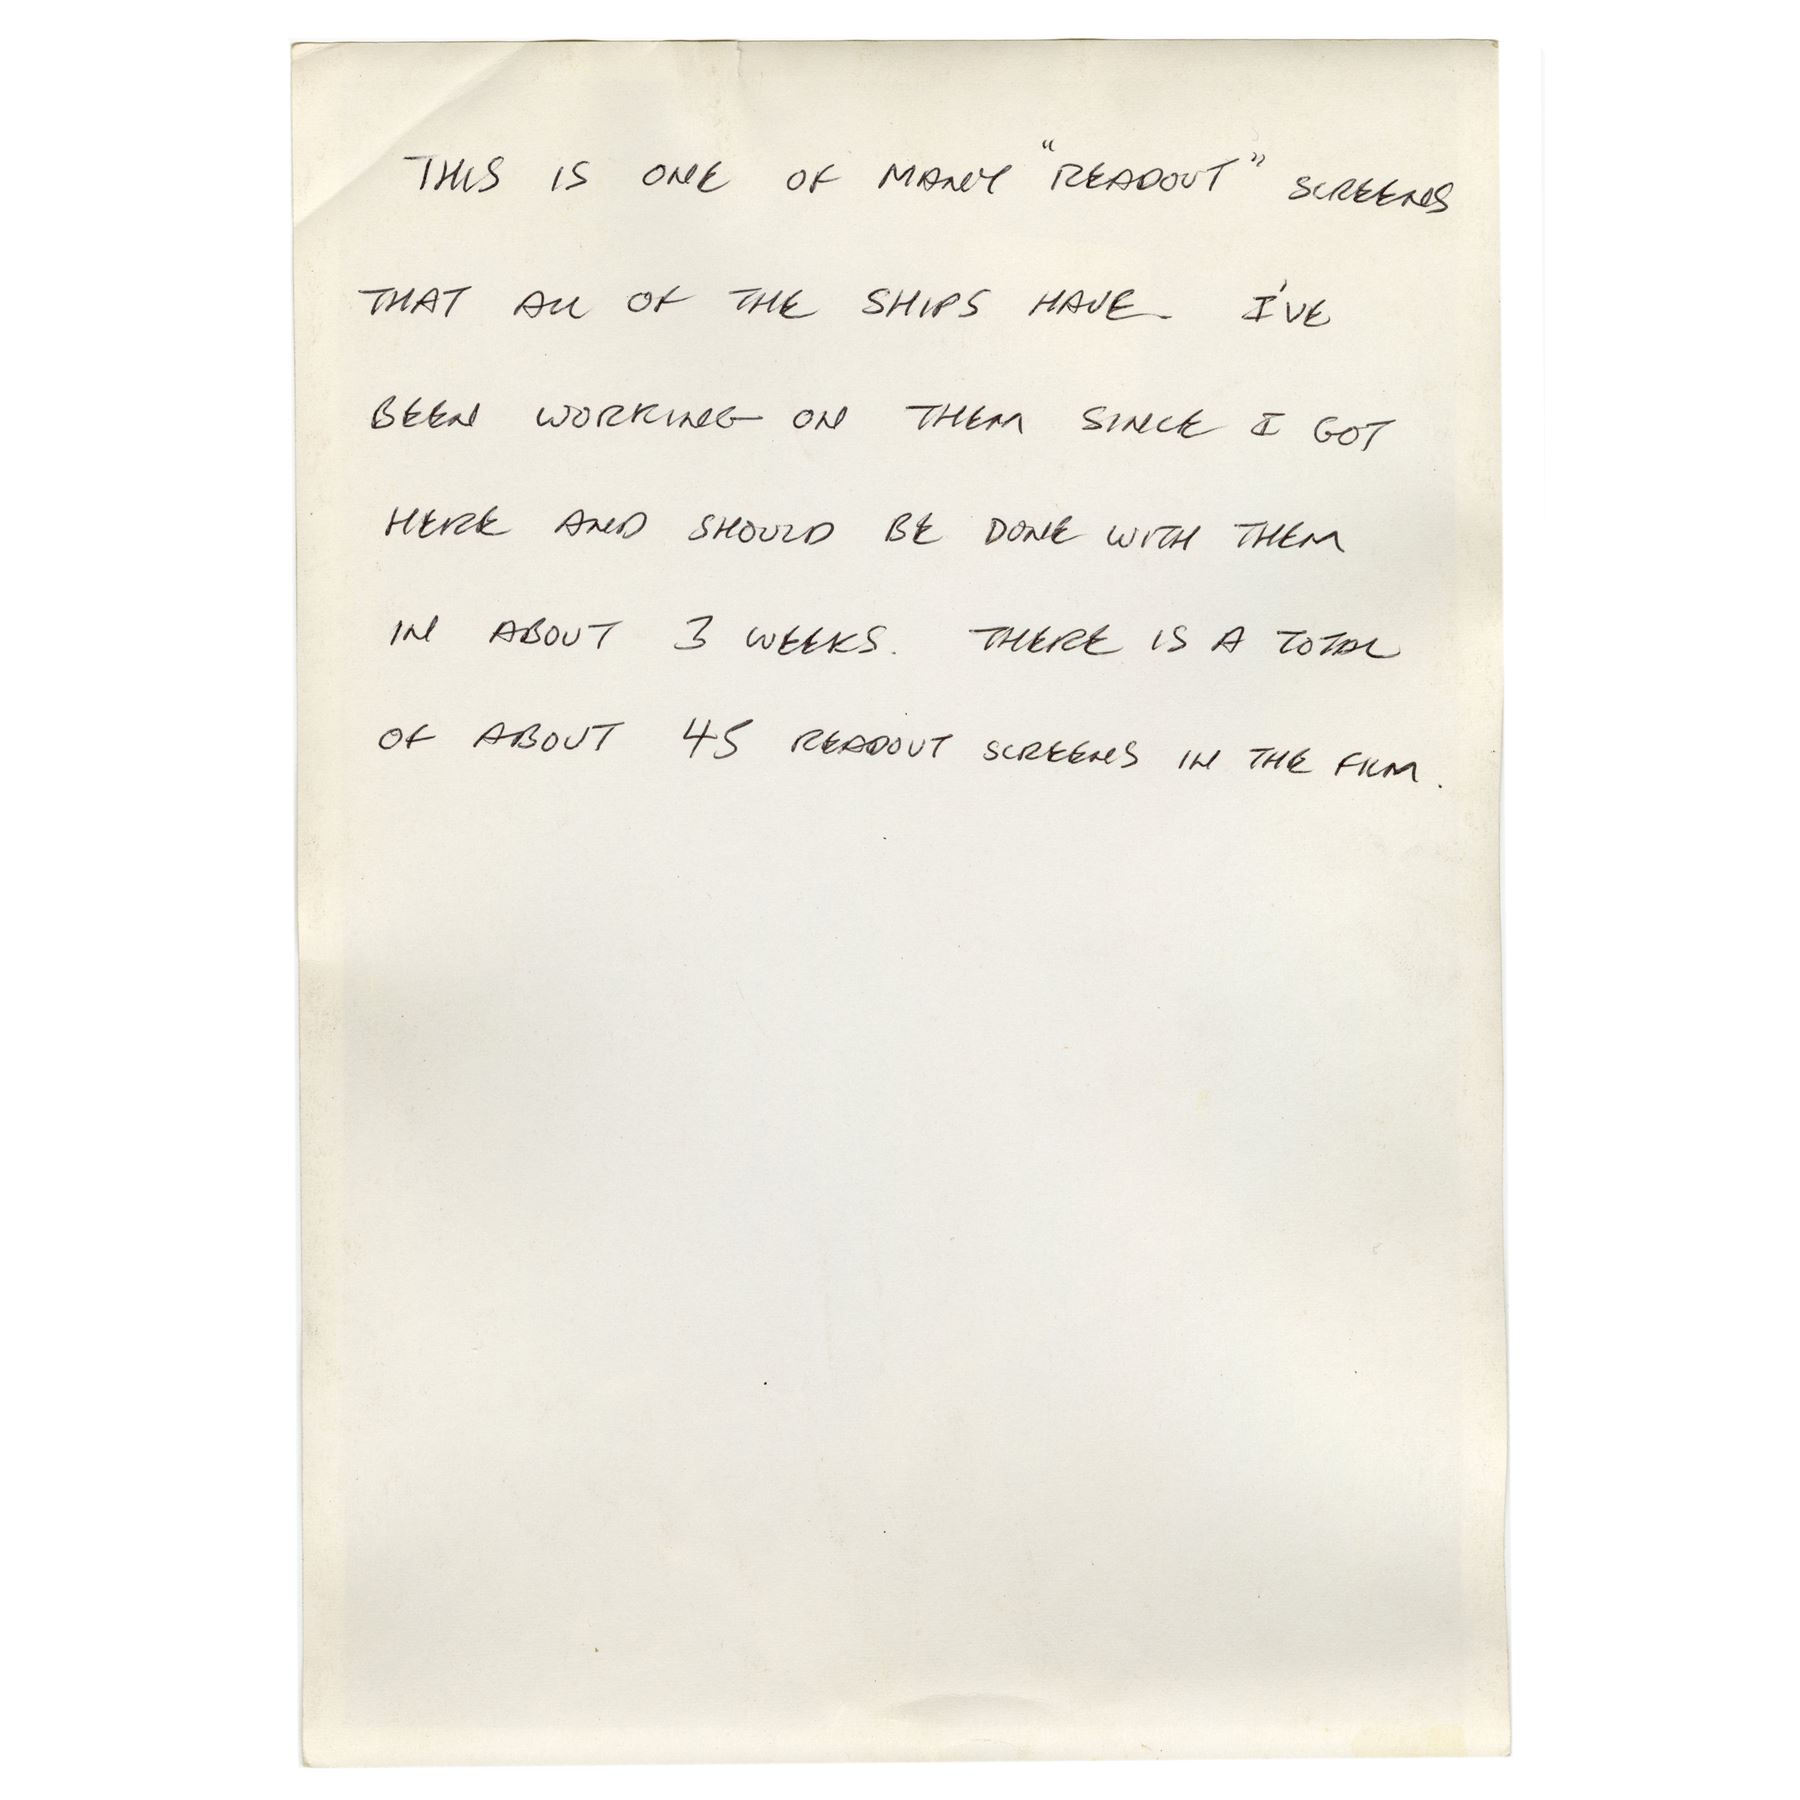 THIS IS ONE OF MANY "READOUT" SCREENS
THAT ALL OF THE SHIPS HAVE. I'VE
BEEN WORKING ON THEM SINCE I GOT
HERE AND SHOULD BE DONE WITH THEM
IN ABOUT 3 WEEKS. THERE IS A TOTAL
OF ABOUT 45 READOUT SCREENS IN THE FILM.